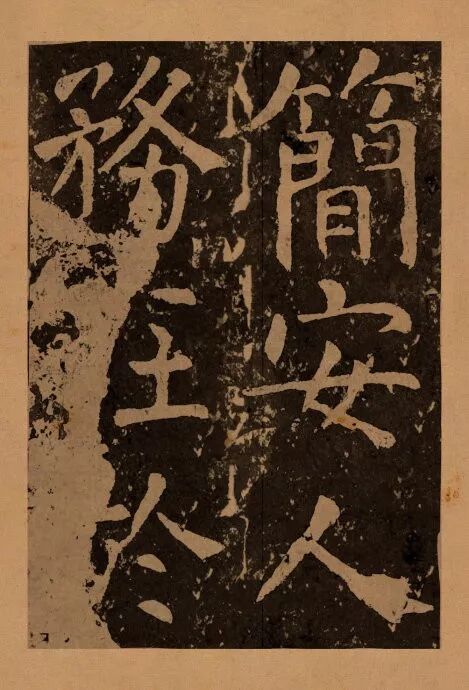 簡安人
務主於